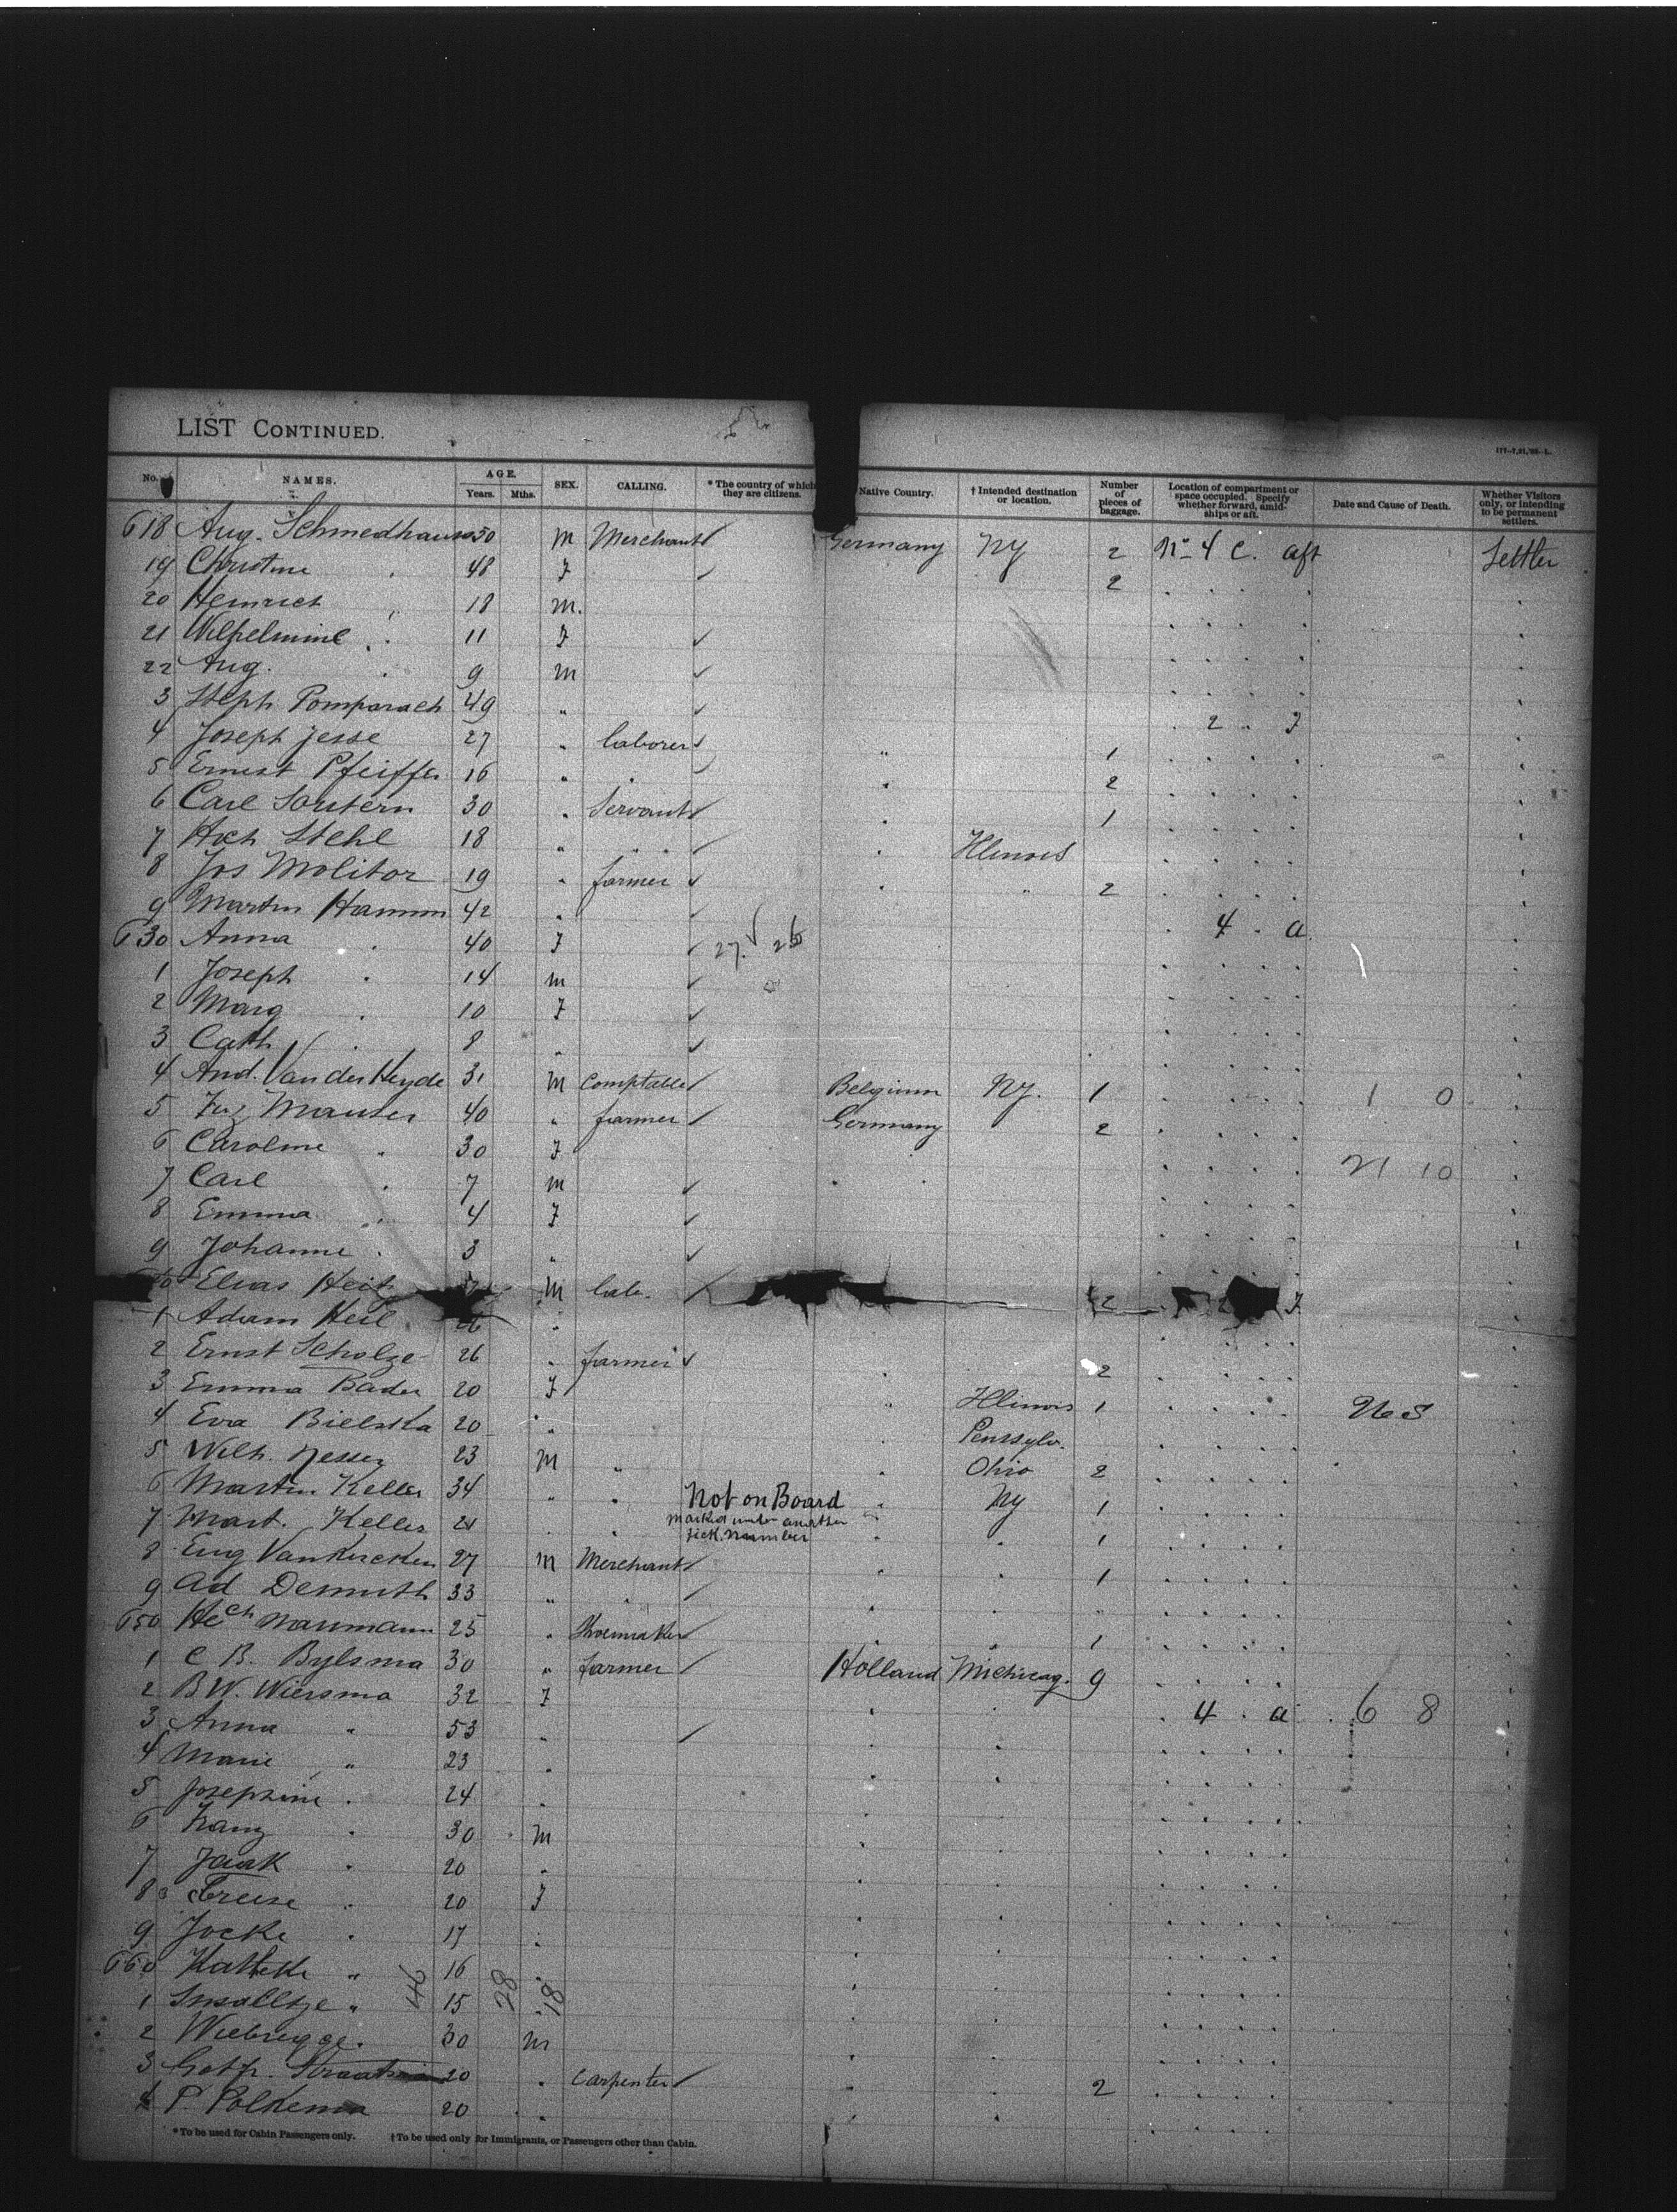 LIST CONTINUED.
111-7,21,'92-L.
No. NAMES. AGE. Years. Mths. SEX. CALLING. * The country of which they are citizens. Native Country. † Intended destination or location. Number of pieces of baggage. Location of compartment or space occupied. Specify whether forward, amidships or aft. Date and Cause of Death. Whether Visitors only, or intending to be permanent settlers.
618 Aug. Schmedhaus 50 m Merchant Germany NY 2 No 4 C. aft Settler
19 Christine 48 f 2
20 Heinrich 18 m.
21 Wilhelmine 11 f
22 Aug. 9 m
3 Steph Pomparach 49 " 2 . f
4 Joseph Jesse 27 " laborer " 1
5 Ernest Pfeiffer 16 " 2
6 Carl Soutern 30 " Servant 1
7 Hch Stehl 18 " Illinois
8 Jos Molitor 19 " farmer " 2
9 Martin Hamm 42 " 4 . a
630 Anna 40 f 27
1 Joseph 14 m
2 Marg 10 f
3 Cath 8 "
4 And. Van der Heyde 31 m Comptable Belgium NY. 1 1 0
5 Mauter 40 " farmer Germany 2
6 Caroline " 30 f 21 10
7 Carl 7 m
8 Emma 4 f
9 Johanne 3 "
Elias m lab. 2 f
1 Adam Heil 26 "
2 Ernst Scholze 26 " farmer 2
3 Emma Bader 20 f " Illinois 1
4 Eva Bielska 20 " Pensylv.
5 Wilh. Nesser 23 m " Ohio 2
6 Martin Keller 34 " Not on Board NY 1
7 Mart. Keller 21 marked under another tick. number 1
8 Eug VanKercken 27 m Merchant 1
9 Ad Demuth 33 "
650 Hch Naumann 25 " Shoemaker 1
1 C B. Bylsma 30 " farmer Holland Michigag. 9
2 B.W. Wiersma 32 f 4 . a 6 8
3 Anna " 53 "
4 Marie " 23 "
5 Josephine 24
6 Franz 30 m
7 20
8 20 f
9 Jocke 17
660 Katteke " 16
1 " 15
46 28 18
2 Wiebrigge. 30 m
3 20 Carpenter 2
4 P. Polkema 20 "
* To be used for Cabin Passengers only. † To be used only for Immigrants, or Passengers other than Cabin.